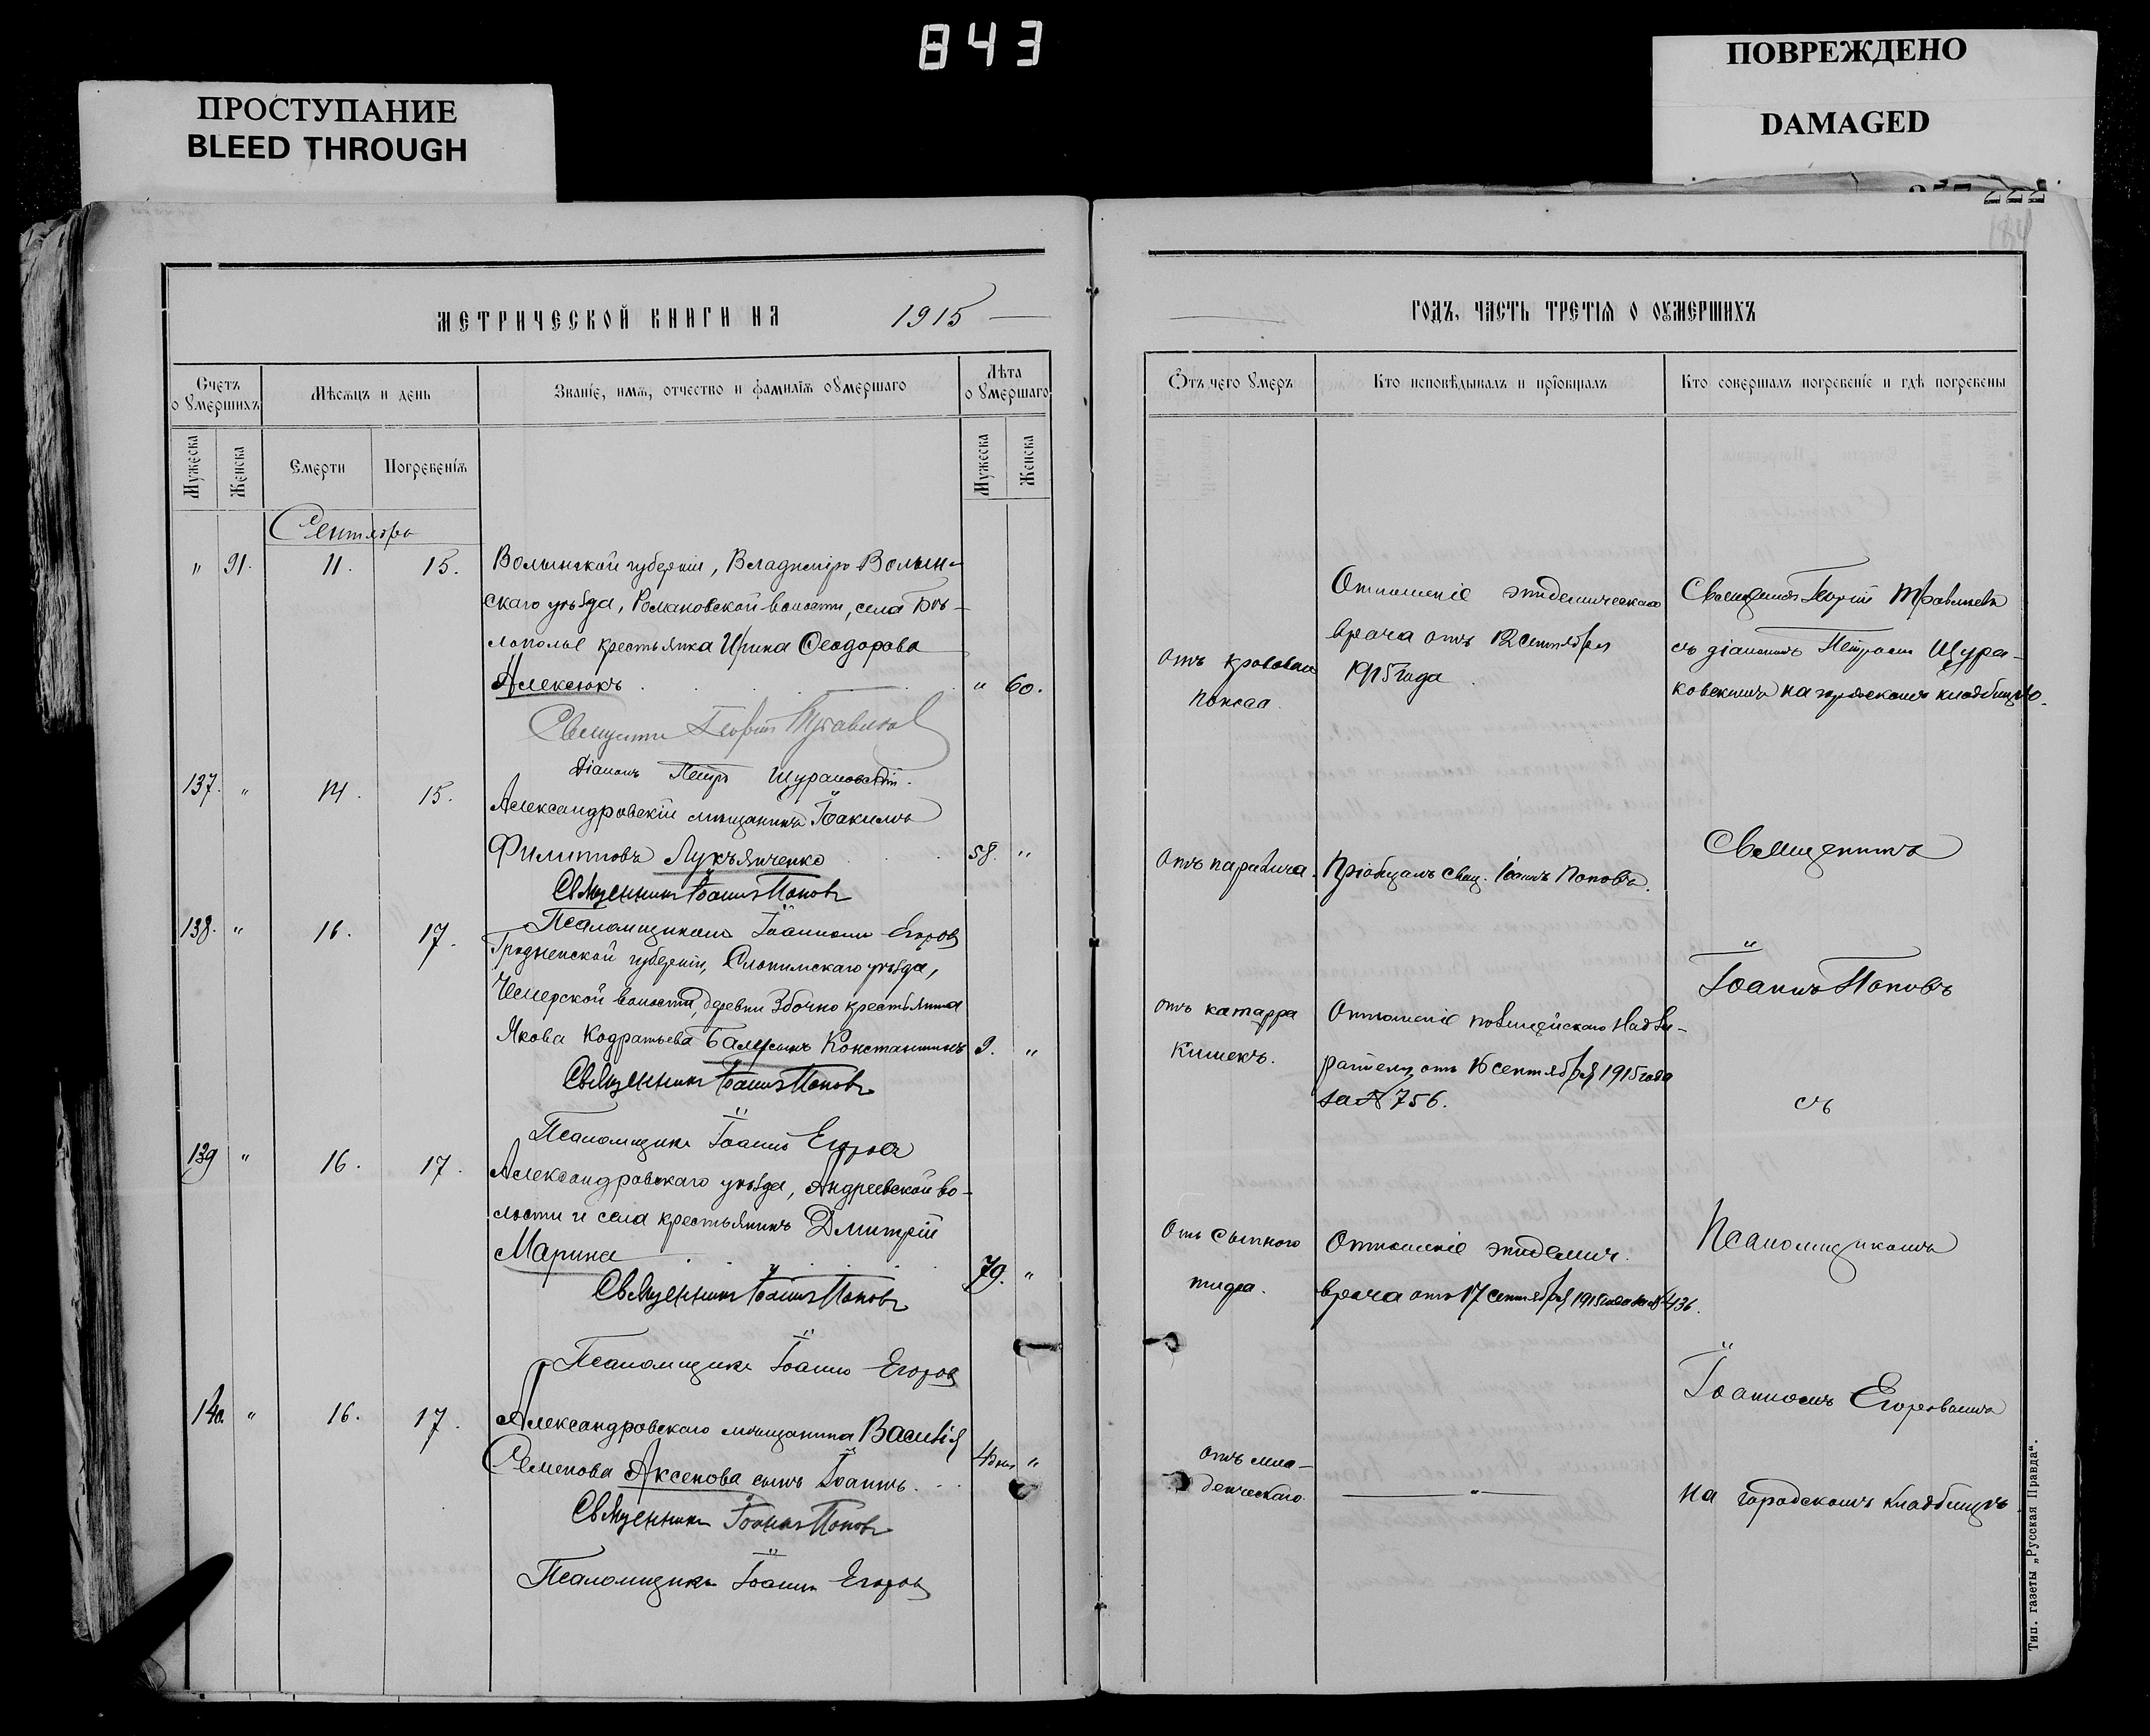 843
ПРОСТУПАНИЕ
BLEED THROUGH
ПОВРЕЖДЕНО
DAMAGED
184
МЕТРИЧЕСКОЙ КНИГИ НА 1915
Счетъ оумершихъ
Мѣсяцъ и день
Званіе, имя, отчество и фамилія оумершаго
Лѣта оумершаго
Мужеска
Женска
Смерти
Погребенія
Мужеска
Женска
Сентябрь
" 91. 11. 15. Волынской губерніи, Владиміро Волын-
скаго уѣзда, Романовской волости, села Бѣ-
лополье крестьянка Ирина Ѳеодорова
Алексюкъ " 60.
Священникъ Георгій Травлевъ
Діаконъ Петръ Щураковскій.
137. " 14. 15. Александровскій мѣщанинъ Іоакимъ
Филипповъ Лукьянченко 58. "
Священникъ Іоаннъ Поповъ
Псаломщикомъ Іоанномъ Егоров
138. " 16. 17. Гродненской губерніи, Слонимскаго уѣзда,
Чемерской волости, деревни Збочно крестьянина
Якова Кодратьева сынъ Константинъ 9. "
Священникъ Іоаннъ Поповъ
Псаломщикъ Іоаннъ Егоров
139 " 16. 17. Александровскаго уѣзда, Андреевской во-
лости и села крестьянинъ Дмитрій
Марина 79. "
Священникъ Іоаннъ Поповъ
Псаломщикъ Іоаннъ Егоров
140 " 16. 17. Александровскаго мѣщанина Василія
Семенова Аксенова сынъ Іоаннъ. 4 дня "
Священникъ Іоаннъ Поповъ
Псаломщикъ Іоаннъ Егоров
ГОДЪ, ЧАСТЬ ТРЕТІЯ О ОУМЕРШИХЪ
Отъ чего умеръ
Кто исповѣдывалъ и пріобщалъ
Кто совершалъ погребеніе и гдѣ погребены
Отъ кроваваго
поноса.
Отношеніе эпидемическаго
врача отъ 12 сентября
1915 года
Священникъ Георгій Травлевъ
съ діакономъ Петромъ Щура-
ковскимъ на городскомъ кладбищѣ.
Отъ паралича.
Пріобщалъ свящ. Іоаннъ Поповъ.
Священникъ
Іоаннъ Поповъ
отъ катарра
кишекъ.
Отношеніе полицейскаго надзи-
рателя отъ 16 сентября 1915 года
за № 756.
съ
Отъ сыпного
тифа.
Отношеніе эпидемич.
врача отъ 17 сентября 1915 года за № 436.
Псаломщикомъ
Іоанномъ Егоровымъ
отъ мла-
денческаго.
"
на городскомъ кладбищѣ
Тип. газеты „Русская Правда“.